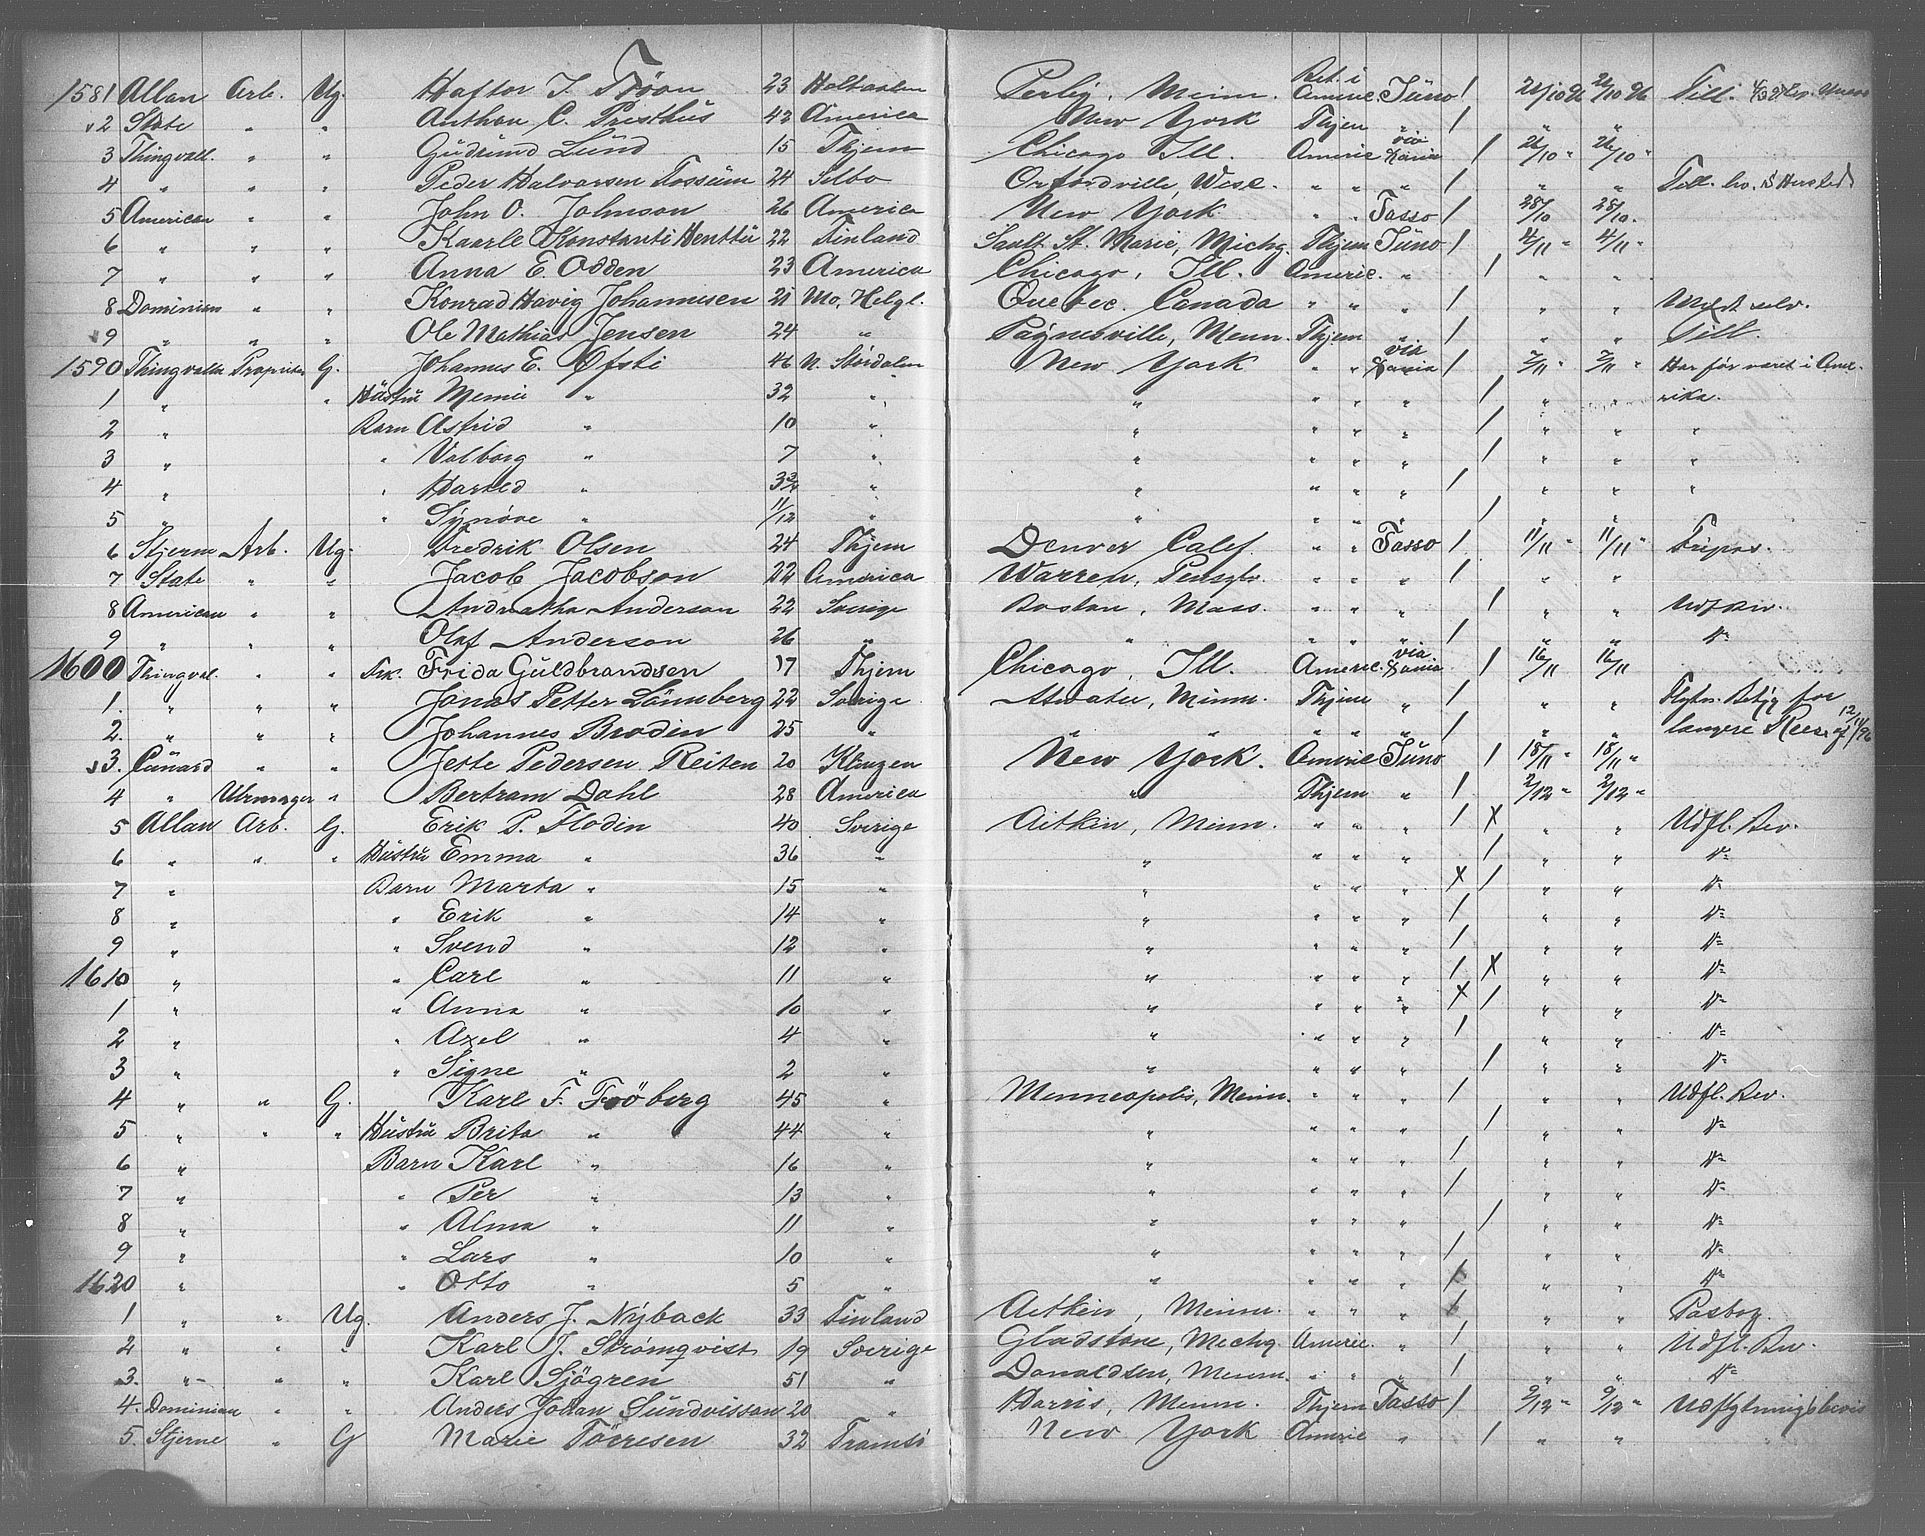 1581 Allan Arb. Ug. Haftor J. Trøan 23 Holtaalen Perley, Minn. Bet. i Americ. Juno / 21/10 96 21/10 96 Till.
2 State " " Anthon C. Presthus 42 America New York Thjem " / " "
3 Thingvall. " " Gudrund Lund 15 Thjem Chicago Ill. Americ via Xania / 26/10 " 26/10 "
4 " " " Peder Halvorsen Fossum 24 Selbo Orfordville, Wisc. " " " / " " Till.
5 American " " John O. Johnson 26 America New York " " Tasso / 28/10 28/10 "
6 " " " Kaarle Konstanti Henttu 22 Finland Sault St. Marie, Michg. Thjem Juno / 4/11 " 4/11 "
7 " " " Anna E. Odden 23 America Chicago, Ill. Americ. " / " "
8 Dominian " " Konrad Havig Johannesen 21 Mo, Helgl. Quebec. Canada " " " / " "
9 " " " Ole Mathias Jensen 24 " Paynesville, Menn. Thjem " / " " Till.
1590 Thingvalla Proprietær G. Johannes E. Øfsti 46 N. Stördalen New York " " via Xania / 7/11 " 7/11 " Har før været i Ame-
1 " " Hustru Memie " 32 " " " " " / " " rika.
2 " Barn Astrid " 10 " " " " " / " " "
3 " " Valborg " 7 " " " " " / " " "
4 " " Harald " 3 " " " " " / " " "
5 " " Synøve " 11/12 " " " " " / " " "
6 Stjerne Arb. Ug. Fredrik Olsen 24 Thjem Denver Calef. " " Tasso / 11/11 " 11/11 "
7 State " " Jacob Jacobson 22 America Warren, Pensylv. " " " / " "
8 American " " Anderson 22 Sverige Boston, Mass. " " " / " "
9 " " " Olaf Anderson 26 " " " " " / " " D=
1600 Thingval. " " Frk. Frida Guldbrandsen 17 Thjem Chicago, Ill. Americ. via Xania / 16/11 16/11
1. " " " Jonas Petter Lönnberg 22 Sverige Atwater, Minn. Thjem " / " " Flytn. Betyg for
2. " " " Johannes Brodin 25 " " " " " / " " længere Reise af 12/11 96
3. Cunard " " Jette Pedersen Reiten 20 Klingen New York. Americ Juno / 18/11 " 18/11 "
4 " Uhrmager " Bertram Dahl 28 America " Thjem " / 2/12 " 2/12 "
5 Allan Arb. G. Erik P. Flodin 40 Sverige Aitkin, Minn. " " " / X " " Udfl. Bev.
6 " " " Hustru Emma " 36 " " " " " / " " D=
7 " Barn Marta " 15 " " " " " X / " " D=
8 " " Erik " 14 " " " " " / " " D=
9 " " Svend " 12 " " " " " / " " D=
1610 " " Carl " 11 " " " " " / X " " D=
1 " " Anna " 10 " " " " " X / " " D=
2 " " Axel " 4 " " " " " / " " D=
3 " " Signe " 2 " " " " " / " " D=
4 " " G. Karl F. Fröberg 45 " Menneapolis, Minn. " " " / " " Udfl. Bev.
5 " " " Hustru Brita " 44 " " " " " / " " D=
6 " Barn Karl " 16 " " " " " / " " D=
7 " " Per " 13 " " " " " / " " D=
8 " " Alma " 11 " " " " " / " " D=
9 " " Lars " 10 " " " " " / " " D=
1620 " " Otto " 5 " " " " " / " " D=
1 " " Ug. Anders J. Nyback 33 Finland Aitkin, Minn. " " " / " "
2 " " " Karl J. Strømqvist 19 Sverige Gladstone, Michg. Americ. " / " " Udfl. Bev.
3. " " " Karl Sjögren 51 " Donaldsen, Menn. " " " / " " D=
4. Dominian " " Anders Johan Sundvisson 20 " Harris, Menn. Thjem Tasso / 9/12 " 9/12 " Udflytningsbevis
5. Stjerne " G Marie Törresen 32 Tromsö New York Americ " / " "